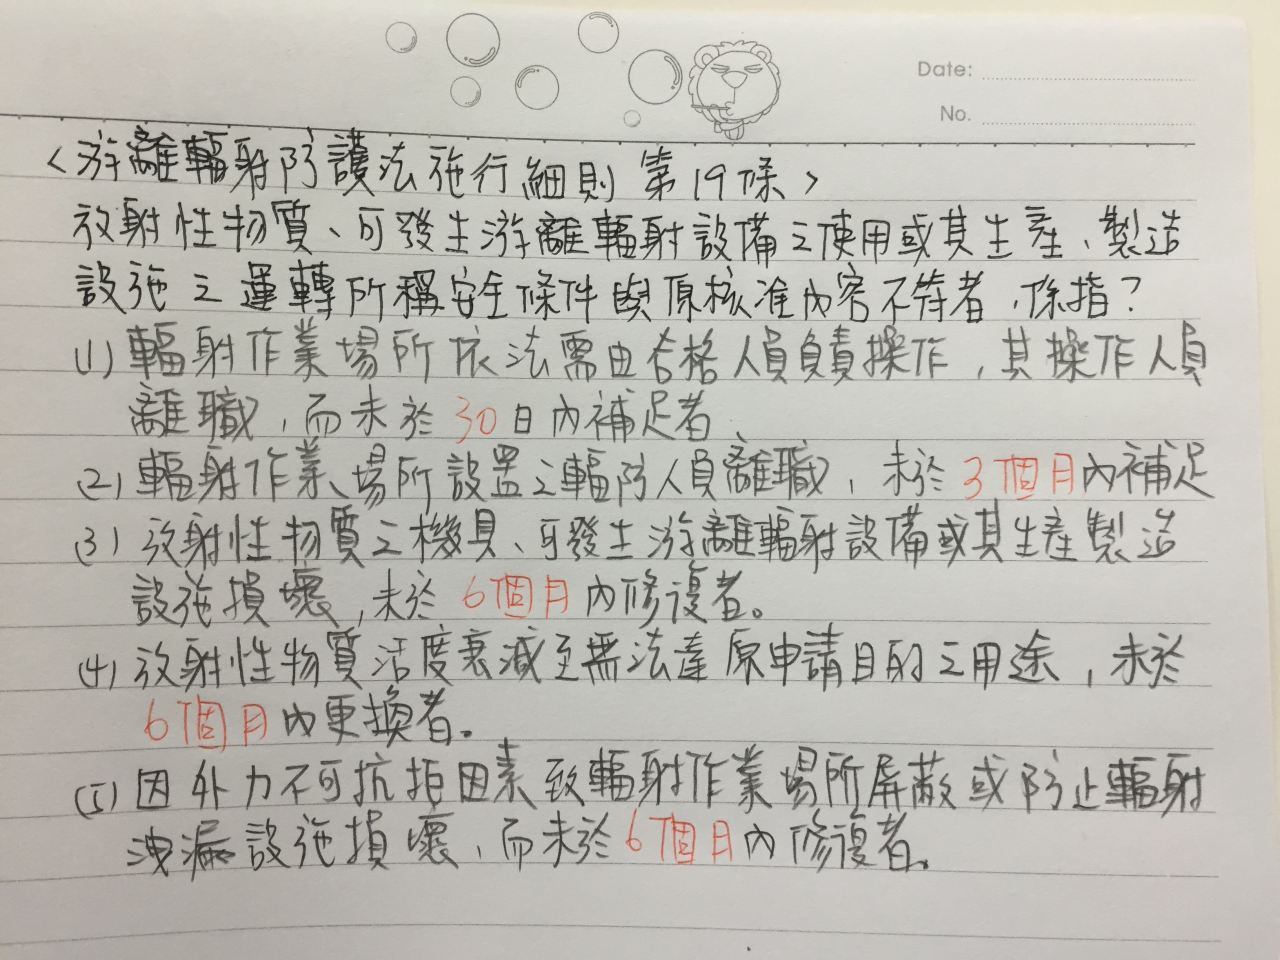 Date:
No.
<游離輻射防護法施行細則 第19條>
放射性物質、可發生游離輻射設備之使用或其生產、製造
設施之運轉所稱安全條件與原核准內容不符者,係指?
(1) 輻射作業場所依法需由合格人員負責操作,其操作人員
離職,而未於30日內補足者.
(2) 輻射作業場所設置之輻防人員離職,未於3個月內補足
(3) 放射性物質之機具、可發生游離輻射設備或其生產製造
設施損壞,未於6個月內修復者。
(4) 放射性物質活度衰減至無法達原申請目的之用途,未於
6個月內更換者。
(5) 因外力不可抗拒因素致輻射作業場所屏蔽或防止輻射
洩漏設施損壞,而未於6個月內修復者。